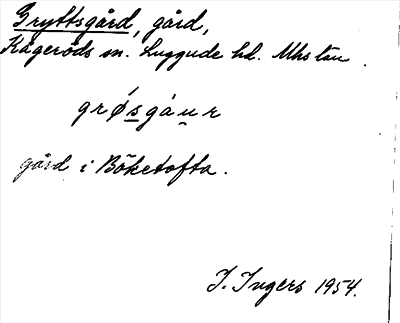 Gryttsgård, gård,
Kågeröds sn. Luggude hd. Mhs län.
grǿsgảu̯r
gård i Böketofta.
I. Ingers 1954.